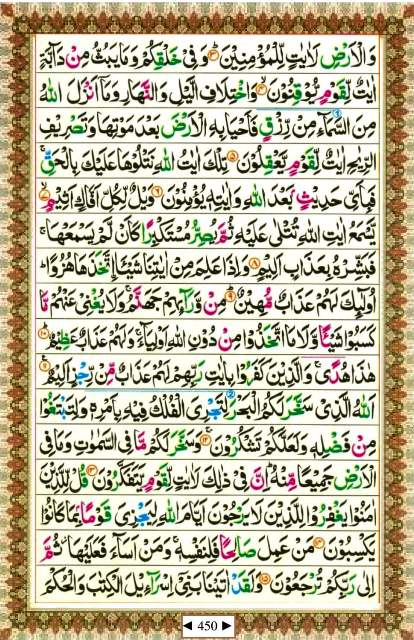 وَالۡاَرۡضِ لَاٰيٰتٍ لِّلۡمُؤۡمِنِيۡنَ ؕ‏﴿۳﴾ وَفِىۡ خَلۡقِكُمۡ وَمَا يَبُثُّ مِنۡ دَآبَّةٍ
اٰيٰتٌ لِّقَوۡمٍ يُّوۡقِنُوۡنَ ۙ‏﴿۴﴾ وَاخۡتِلَافِ الَّيۡلِ وَالنَّهَارِ وَمَاۤ اَنۡزَلَ اللّٰهُ
مِنَ السَّمَآءِ مِنۡ رِّزۡقٍ فَاَحۡيَا بِهِ الۡاَرۡضَ بَعۡدَ مَوۡتِهَا وَ تَصۡرِيۡفِ
الرِّيٰحِ اٰيٰتٌ لِّقَوۡمٍ يَّعۡقِلُوۡنَ‏﴿۵﴾ تِلۡكَ اٰيٰتُ اللّٰهِ نَـتۡلُوۡهَا عَلَيۡكَ بِالۡحَقِّ‌ ۚ
فَبِاَىِّ حَدِيۡثٍۢ بَعۡدَ اللّٰهِ وَاٰيٰتِهٖ يُؤۡمِنُوۡنَ‏﴿۶﴾ وَيۡلٌ لِّـكُلِّ اَفَّاكٍ اَثِيۡمٍۙ‏﴿۷﴾
يَّسۡمَعُ اٰيٰتِ اللّٰهِ تُتۡلٰى عَلَيۡهِ ثُمَّ يُصِرُّ مُسۡتَكۡبِرًا كَاَنۡ لَّمۡ يَسۡمَعۡهَا‌ ۚ
فَبَشِّرۡهُ بِعَذَابٍ اَلِيۡمٍ‏﴿۸﴾ وَاِذَا عَلِمَ مِنۡ اٰيٰتِنَا شَيۡـًٔـا اۨتَّخَذَهَا هُزُوًا‌ ؕ
اُولٰٓٮِٕكَ لَهُمۡ عَذَابٌ مُّهِيۡنٌ ؕ‏﴿۹﴾ مِنۡ وَّرَآٮِٕهِمۡ جَهَنَّمُۚ وَلَا يُغۡنِىۡ عَنۡهُمۡ مَّا
كَسَبُوۡا شَيۡـًٔـا وَّلَا مَا اتَّخَذُوۡا مِنۡ دُوۡنِ اللّٰهِ اَوۡلِيَآءَ‌ ۚ وَلَهُمۡ عَذَابٌ عَظِيۡمٌؕ‏﴿۱۰﴾
هٰذَا هُدًى‌ ۚ وَالَّذِيۡنَ كَفَرُوۡا بِاٰيٰتِ رَبِّهِمۡ لَهُمۡ عَذَابٌ مِّنۡ رِّجۡزٍ اَلِيۡمٌ‏﴿۱۱﴾
اَللّٰهُ الَّذِىۡ سَخَّرَ لَـكُمُ الۡبَحۡرَ لِتَجۡرِىَ الۡفُلۡكُ فِيۡهِ بِاَمۡرِهٖ وَلِتَبۡتَغُوۡا
مِنۡ فَضۡلِهٖ وَلَعَلَّكُمۡ تَشۡكُرُوۡنَ‌ۚ‏﴿۱۲﴾ وَسَخَّرَ لَكُمۡ مَّا فِى السَّمٰوٰتِ وَمَا فِى
الۡاَرۡضِ جَمِيۡعًا مِّنۡهُ‌ ؕ اِنَّ فِىۡ ذٰلِكَ لَاٰيٰتٍ لِّقَوۡمٍ يَّتَفَكَّرُوۡنَ‏﴿۱۳﴾ قُلْ لِّلَّذِيۡنَ
اٰمَنُوۡا يَغۡفِرُوۡا لِلَّذِيۡنَ لَا يَرۡجُوۡنَ اَيَّامَ اللّٰهِ لِيَجۡزِىَ قَوۡمًۢا بِمَا كَانُوۡا
يَكۡسِبُوۡنَ‏﴿۱۴﴾ مَنۡ عَمِلَ صَالِحًـا فَلِنَفۡسِهٖ‌ۚ وَمَنۡ اَسَآءَ فَعَلَيۡهَا ثُمَّ
اِلٰى رَبِّكُمۡ تُرۡجَعُوۡنَ‏﴿۱۵﴾ وَلَقَدۡ اٰتَيۡنَا بَنِىۡۤ اِسۡرَآءِيۡلَ الۡـكِتٰبَ وَالۡحُكۡمَ
◄ 450 ►